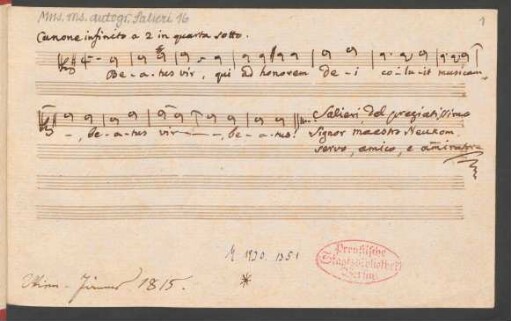 Mus. ms. autogr. Salieri 16
1
Canone infinito a 2 in quarta sotto.
Be-a-tus vir, qui ad honorem de-i co-lu-it musicam,
be-a-tus vir, be-a-tus!
Salieri del pregiatissimo
Signor maestro Neukom
servo, amico, e amiratore
M 1930. 1351
Preußische
Staatsbibliothek
Berlin
1815.